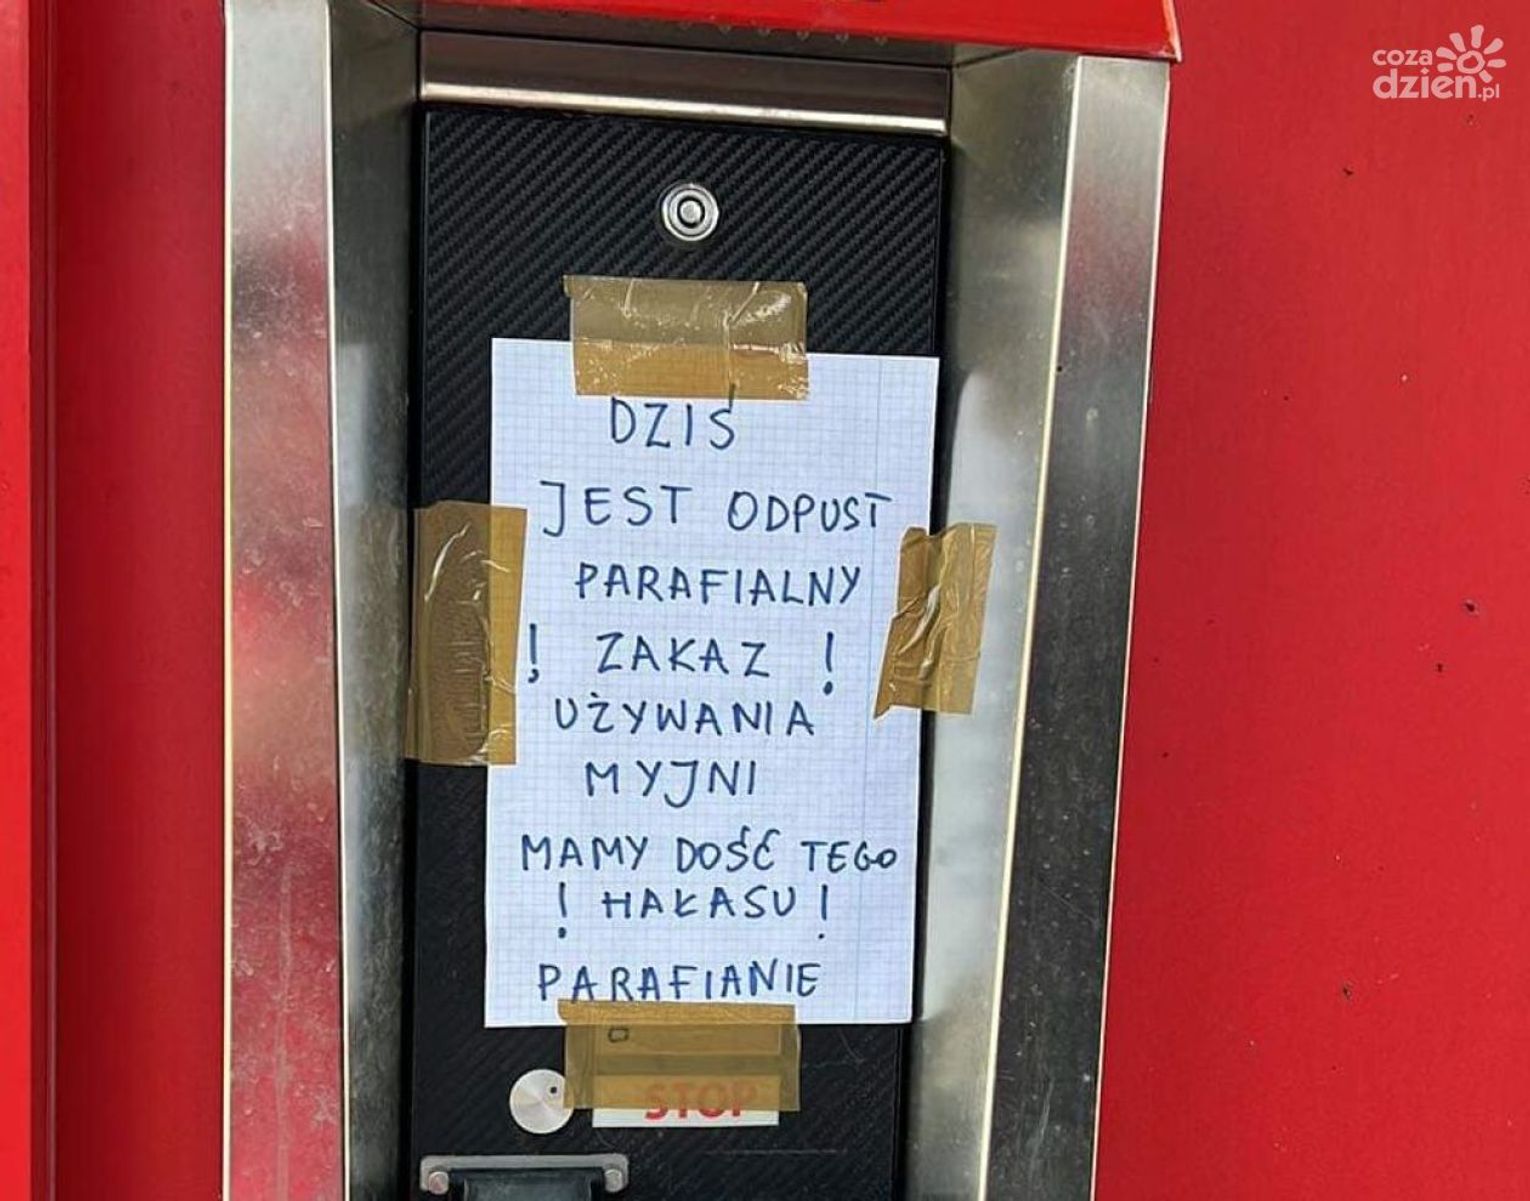 coza
dzien.pl
DZIŚ
JEST ODPUST
PARAFIALNY
! ZAKAZ !
UŻYWANIA
MYJNI
MAMY DOŚĆ TEGO
! HAŁASU !
PARAFIANIE
STOP